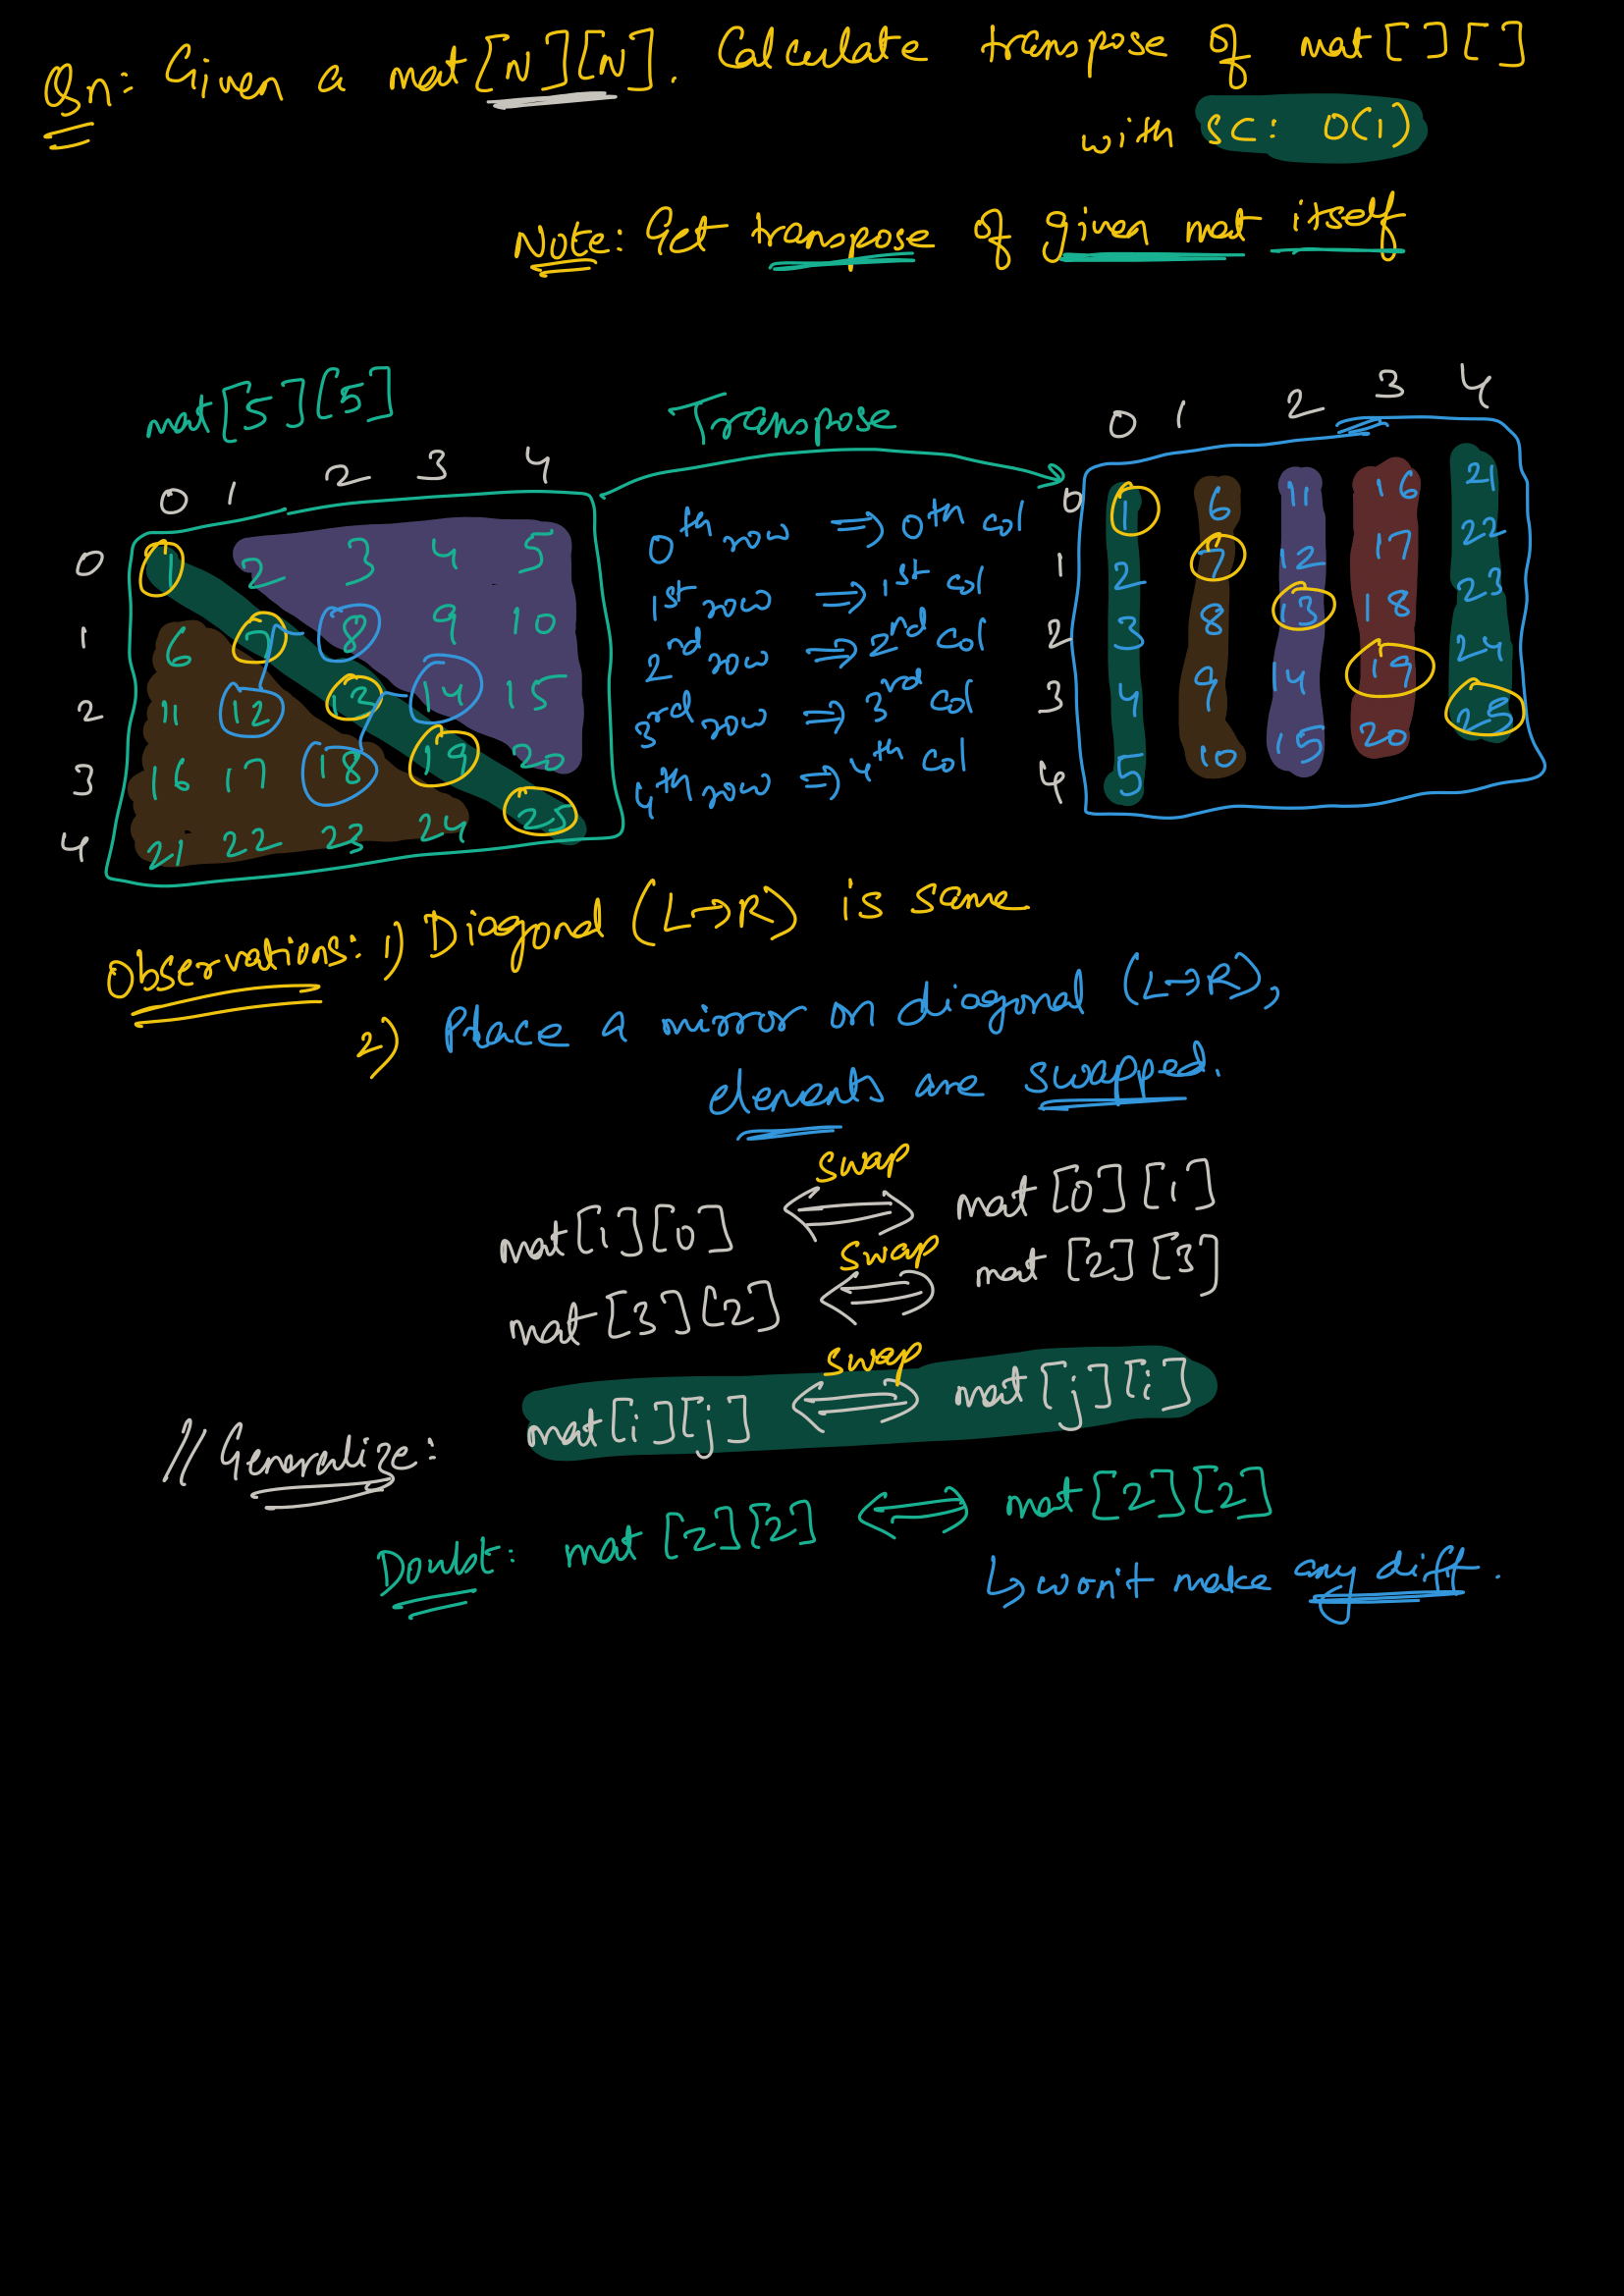 Qn: Given a mat[N][N]. Calculate transpose of mat[][]
with SC: O(1)
Note: Get transpose of given mat itself
mat[5][5]
Transpose
0 1 2 3 4
0 1 2 3 4 5
1 6 7 8 9 10
2 11 12 13 14 15
3 16 17 18 19 20
4 21 22 23 24 25
0th row ⇒ 0th col
1st row ⇒ 1st col
2nd row ⇒ 2nd col
3rd row ⇒ 3rd col
4th row ⇒ 4th col
0 1 2 3 4
0 1 6 11 16 21
1 2 7 12 17 22
2 3 8 13 18 23
3 4 9 14 19 24
4 5 10 15 20 25
Observations: 1) Diagonal (L→R) is same
2) Place a mirror on diagonal (L→R),
elements are swapped.
swap
mat[1][0] ⇔ mat[0][1]
swap
mat[3][2] ⇔ mat[2][3]
swap
// Generalize: mat[i][j] ⇔ mat[j][i]
Doubt: mat[2][2] ⇔ mat[2][2]
↳ won't make any diff.